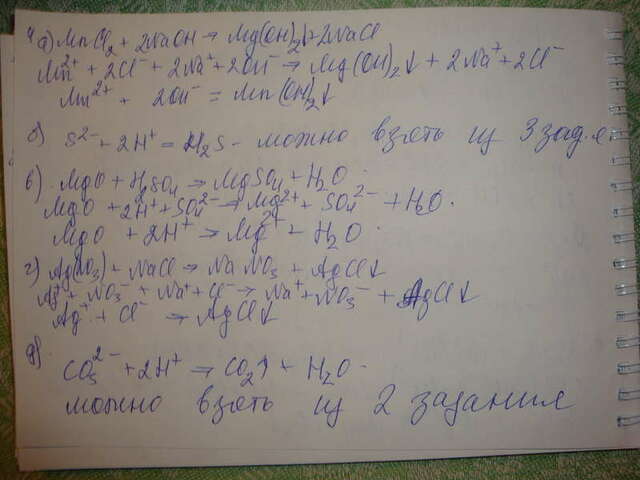 4 а) MnCl2 + 2NaOH → Mg(OH)2↓ + 2NaCl
Mn²⁺ + 2Cl⁻ + 2Na⁺ + 2OH⁻ → Mg(OH)2↓ + 2Na⁺ + 2Cl⁻
Mn²⁺ + 2OH⁻ = Mn(OH)2↓
б) S²⁻ + 2H⁺ = H2S - можно взять из 3 зад.
в) MgO + H2SO4 → MgSO4 + H2O.
MgO + 2H⁺ + SO4²⁻ → Mg²⁺ + SO4²⁻ + H2O.
MgO + 2H⁺ → Mg²⁺ + H2O.
г) Ag(NO3) + NaCl → NaNO3 + AgCl↓
Ag⁺ + NO3⁻ + Na⁺ + Cl⁻ → Na⁺ + NO3⁻ + AgCl↓
Ag⁺ + Cl⁻ → AgCl↓
д)
CO3²⁻ + 2H⁺ → CO2↑ + H2O.
можно взять из 2 задания